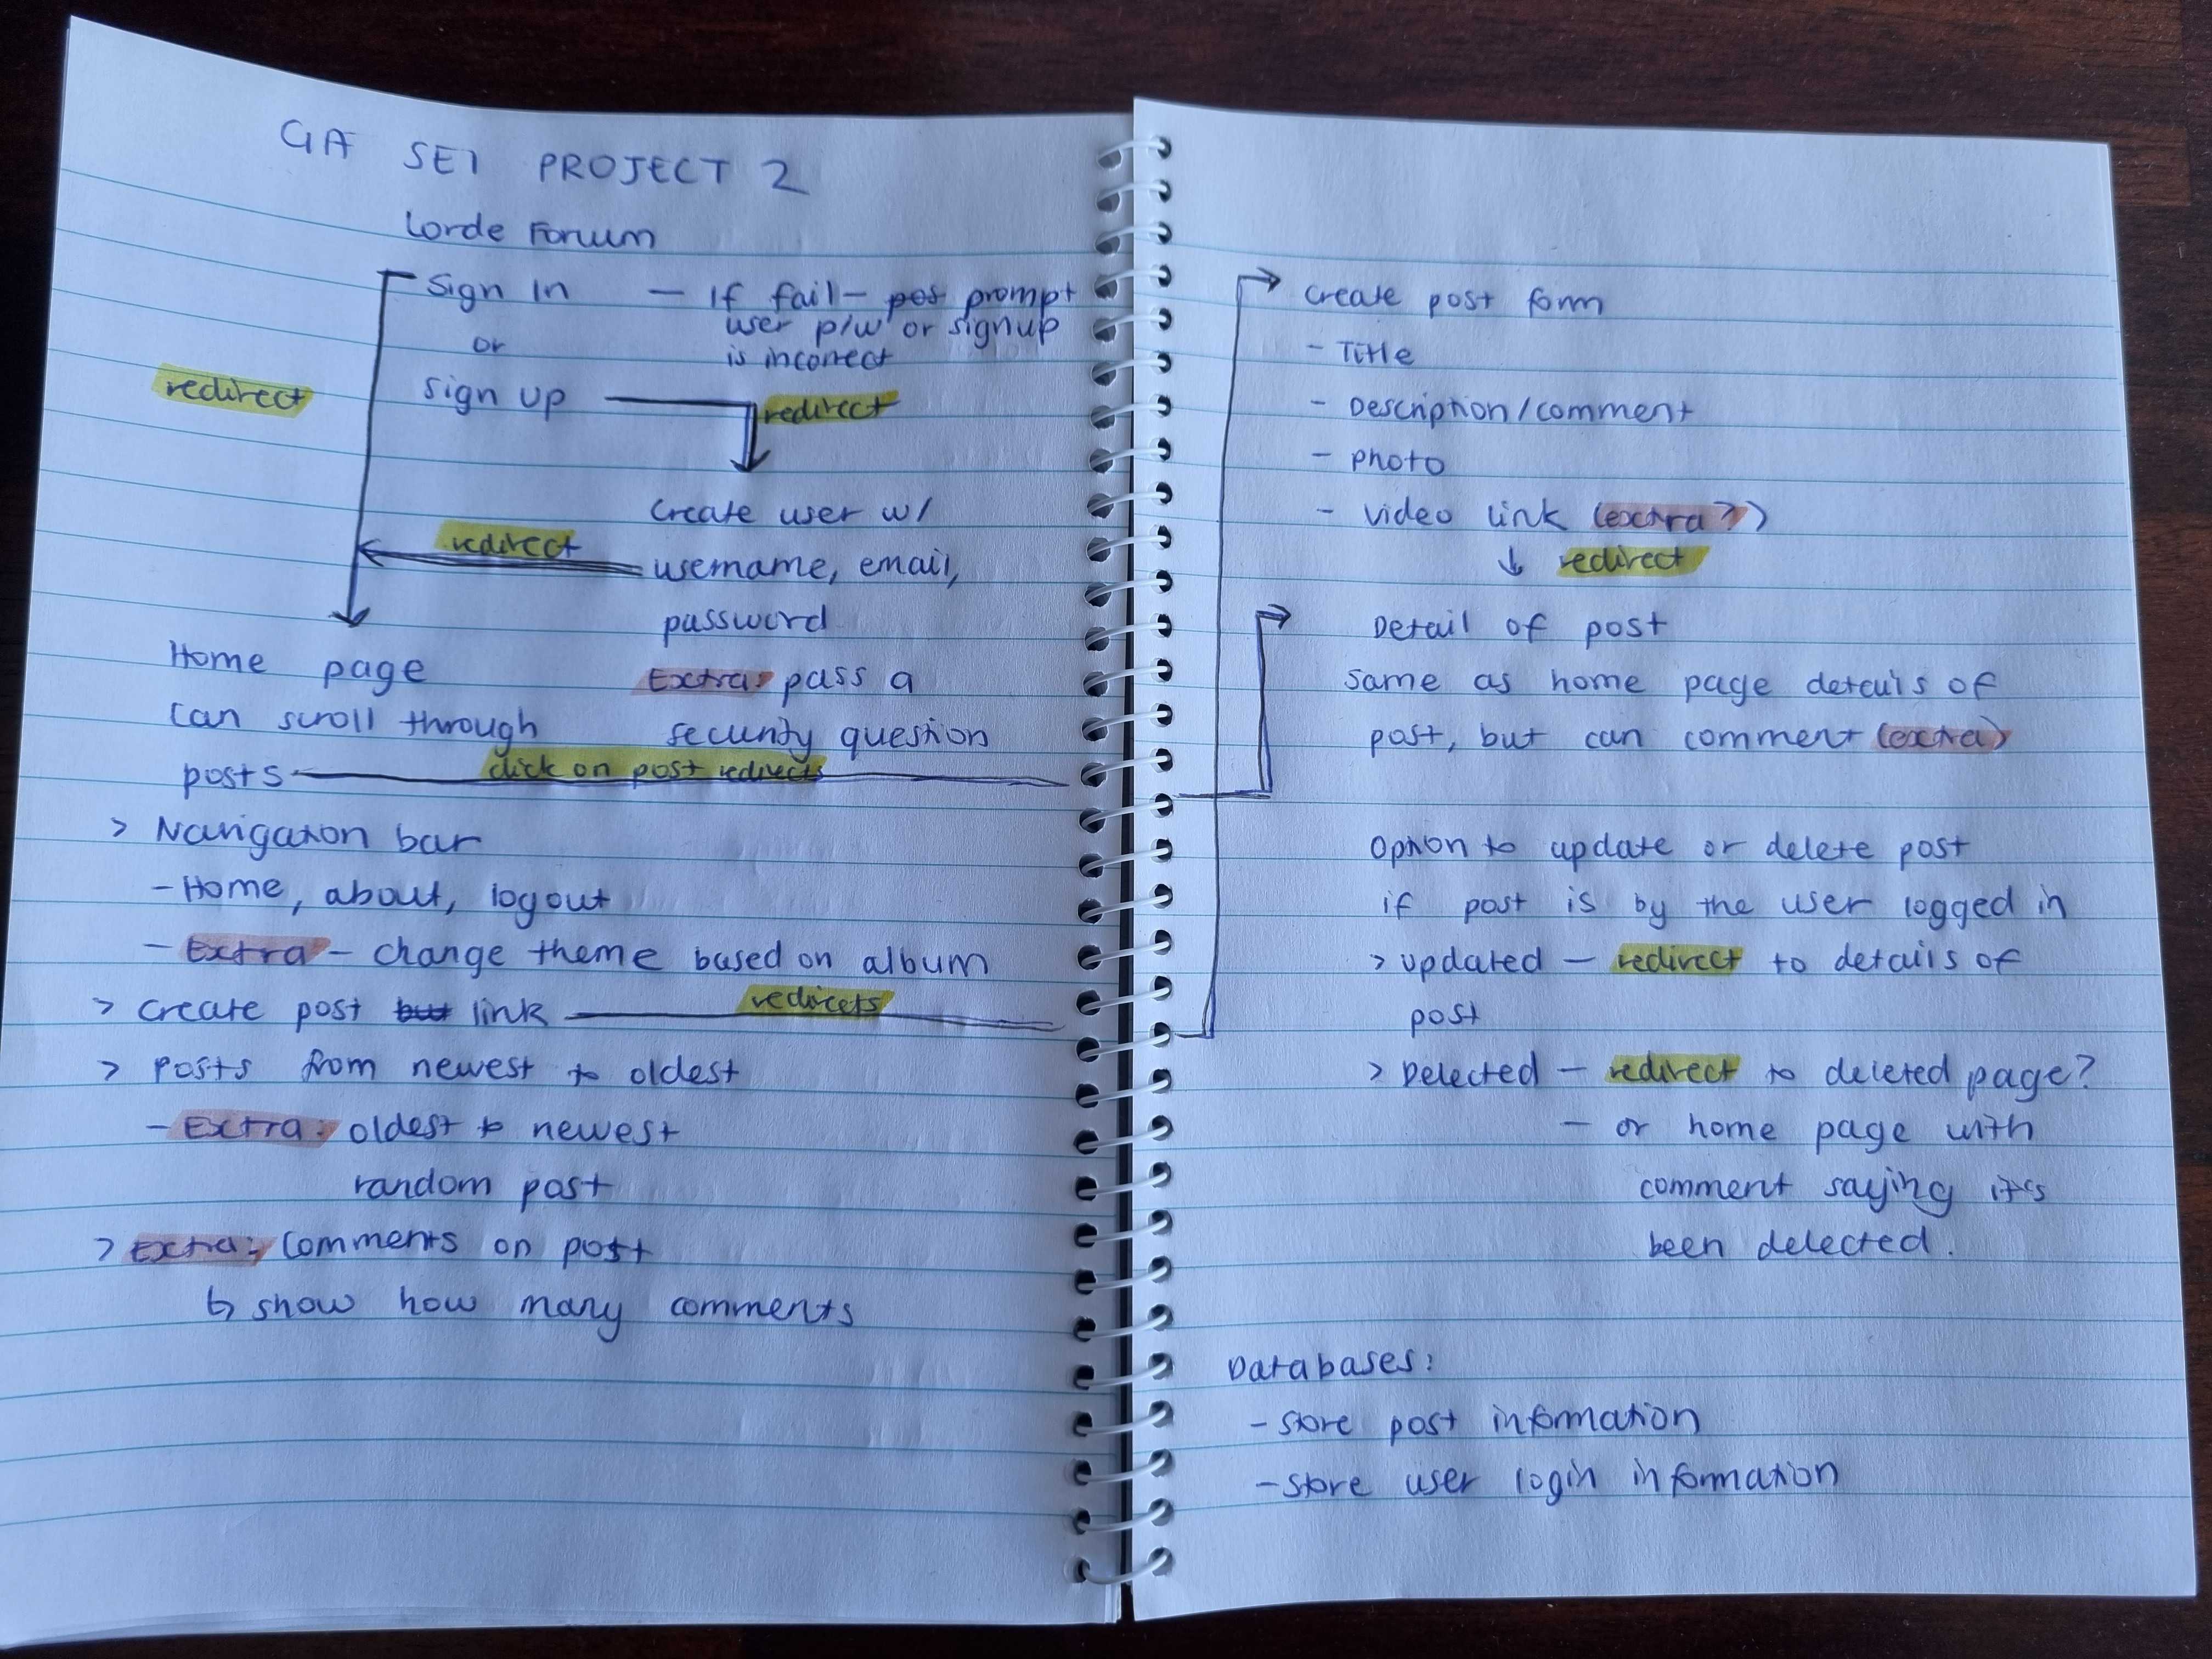 GA SEI PROJECT 2
Lorde Forum
Sign In — If fail — pos prompt
user p/w or signup
or
is incorrect
redirect
Sign up
redirect
Create user w/
redirect
username, email,
password
Home page
Extra: pass a
can scroll through
security question
posts
click on post redirects
> Navigaton bar
- Home, about, logout
- Extra - change theme based on album
> create post but link
redirects
> Posts from newest to oldest
- Extra: oldest to newest
random post
> Extra: Comments on post
↳ show how many comments
create post form
- Title
- Description/comment
- Photo
- Video link (extra?)
↓ redirect
Detail of post
same as home page details of
post, but can comment (extra)
Option to update or delete post
if post is by the user logged in
> updated — redirect to details of
post
> Delected — redirect to deleted page?
- or home page with
comment saying it's
been delected.
Databases:
- store post information
- store user login information